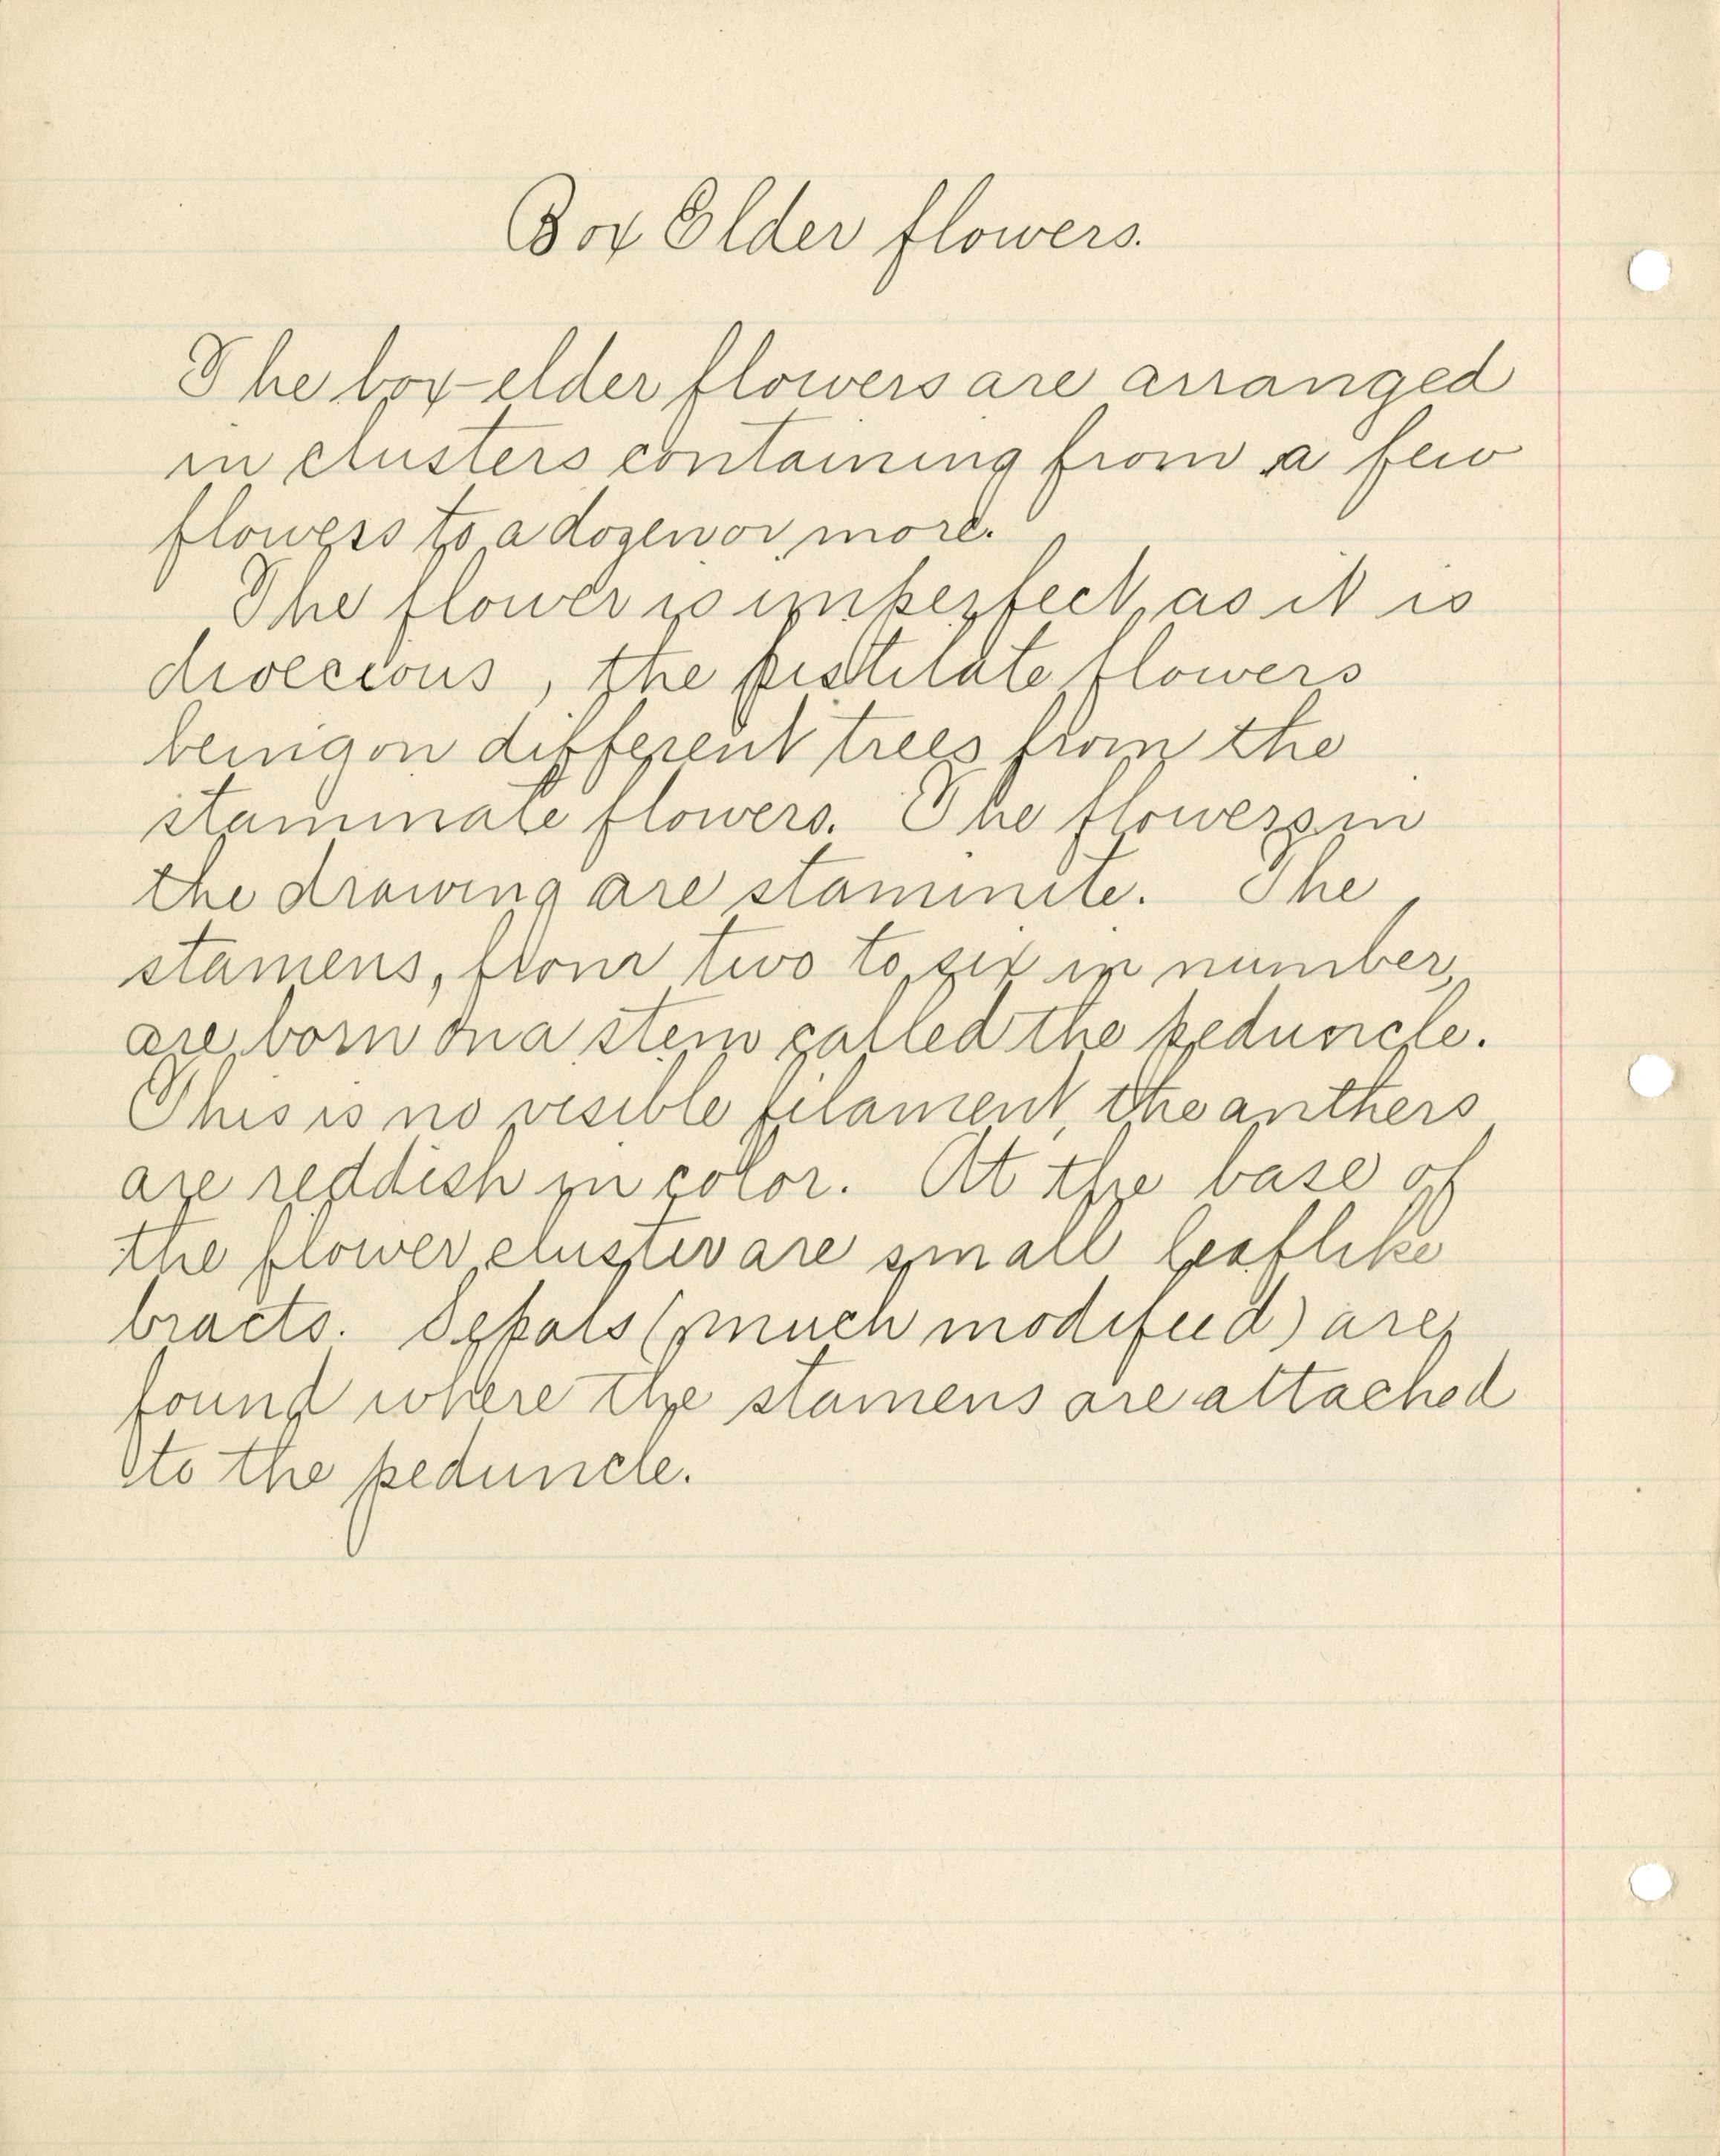 Box Elder flowers.
The box-elder flowers are arranged
in clusters containing from a few
flowers to a dozen or more.
The flower is imperfect, as it is
dioecious, the pistilate flowers
being on different trees from the
staminate flowers. The flowers in
the drawing are staminite. The
stamens, from two to six in number,
are born on a stem called the peduncle.
This is no visible filament, the anthers
are reddish in color. At the base of
the flower cluster are small leaflike
bracts. Sepals (much modified) are
found where the stamens are attached
to the peduncle.